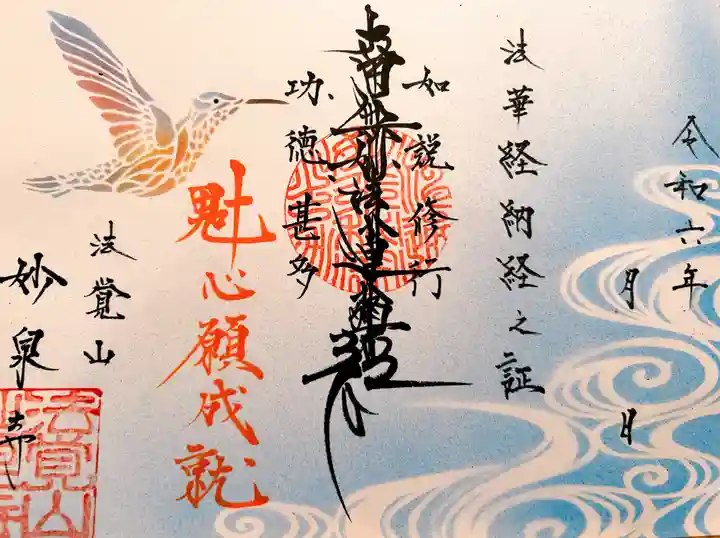 令和六年
月 日
法華経納経之証
如説修行
南無妙法蓮華経
功徳甚多
心願成就
法覚山
妙泉寺
法覚山